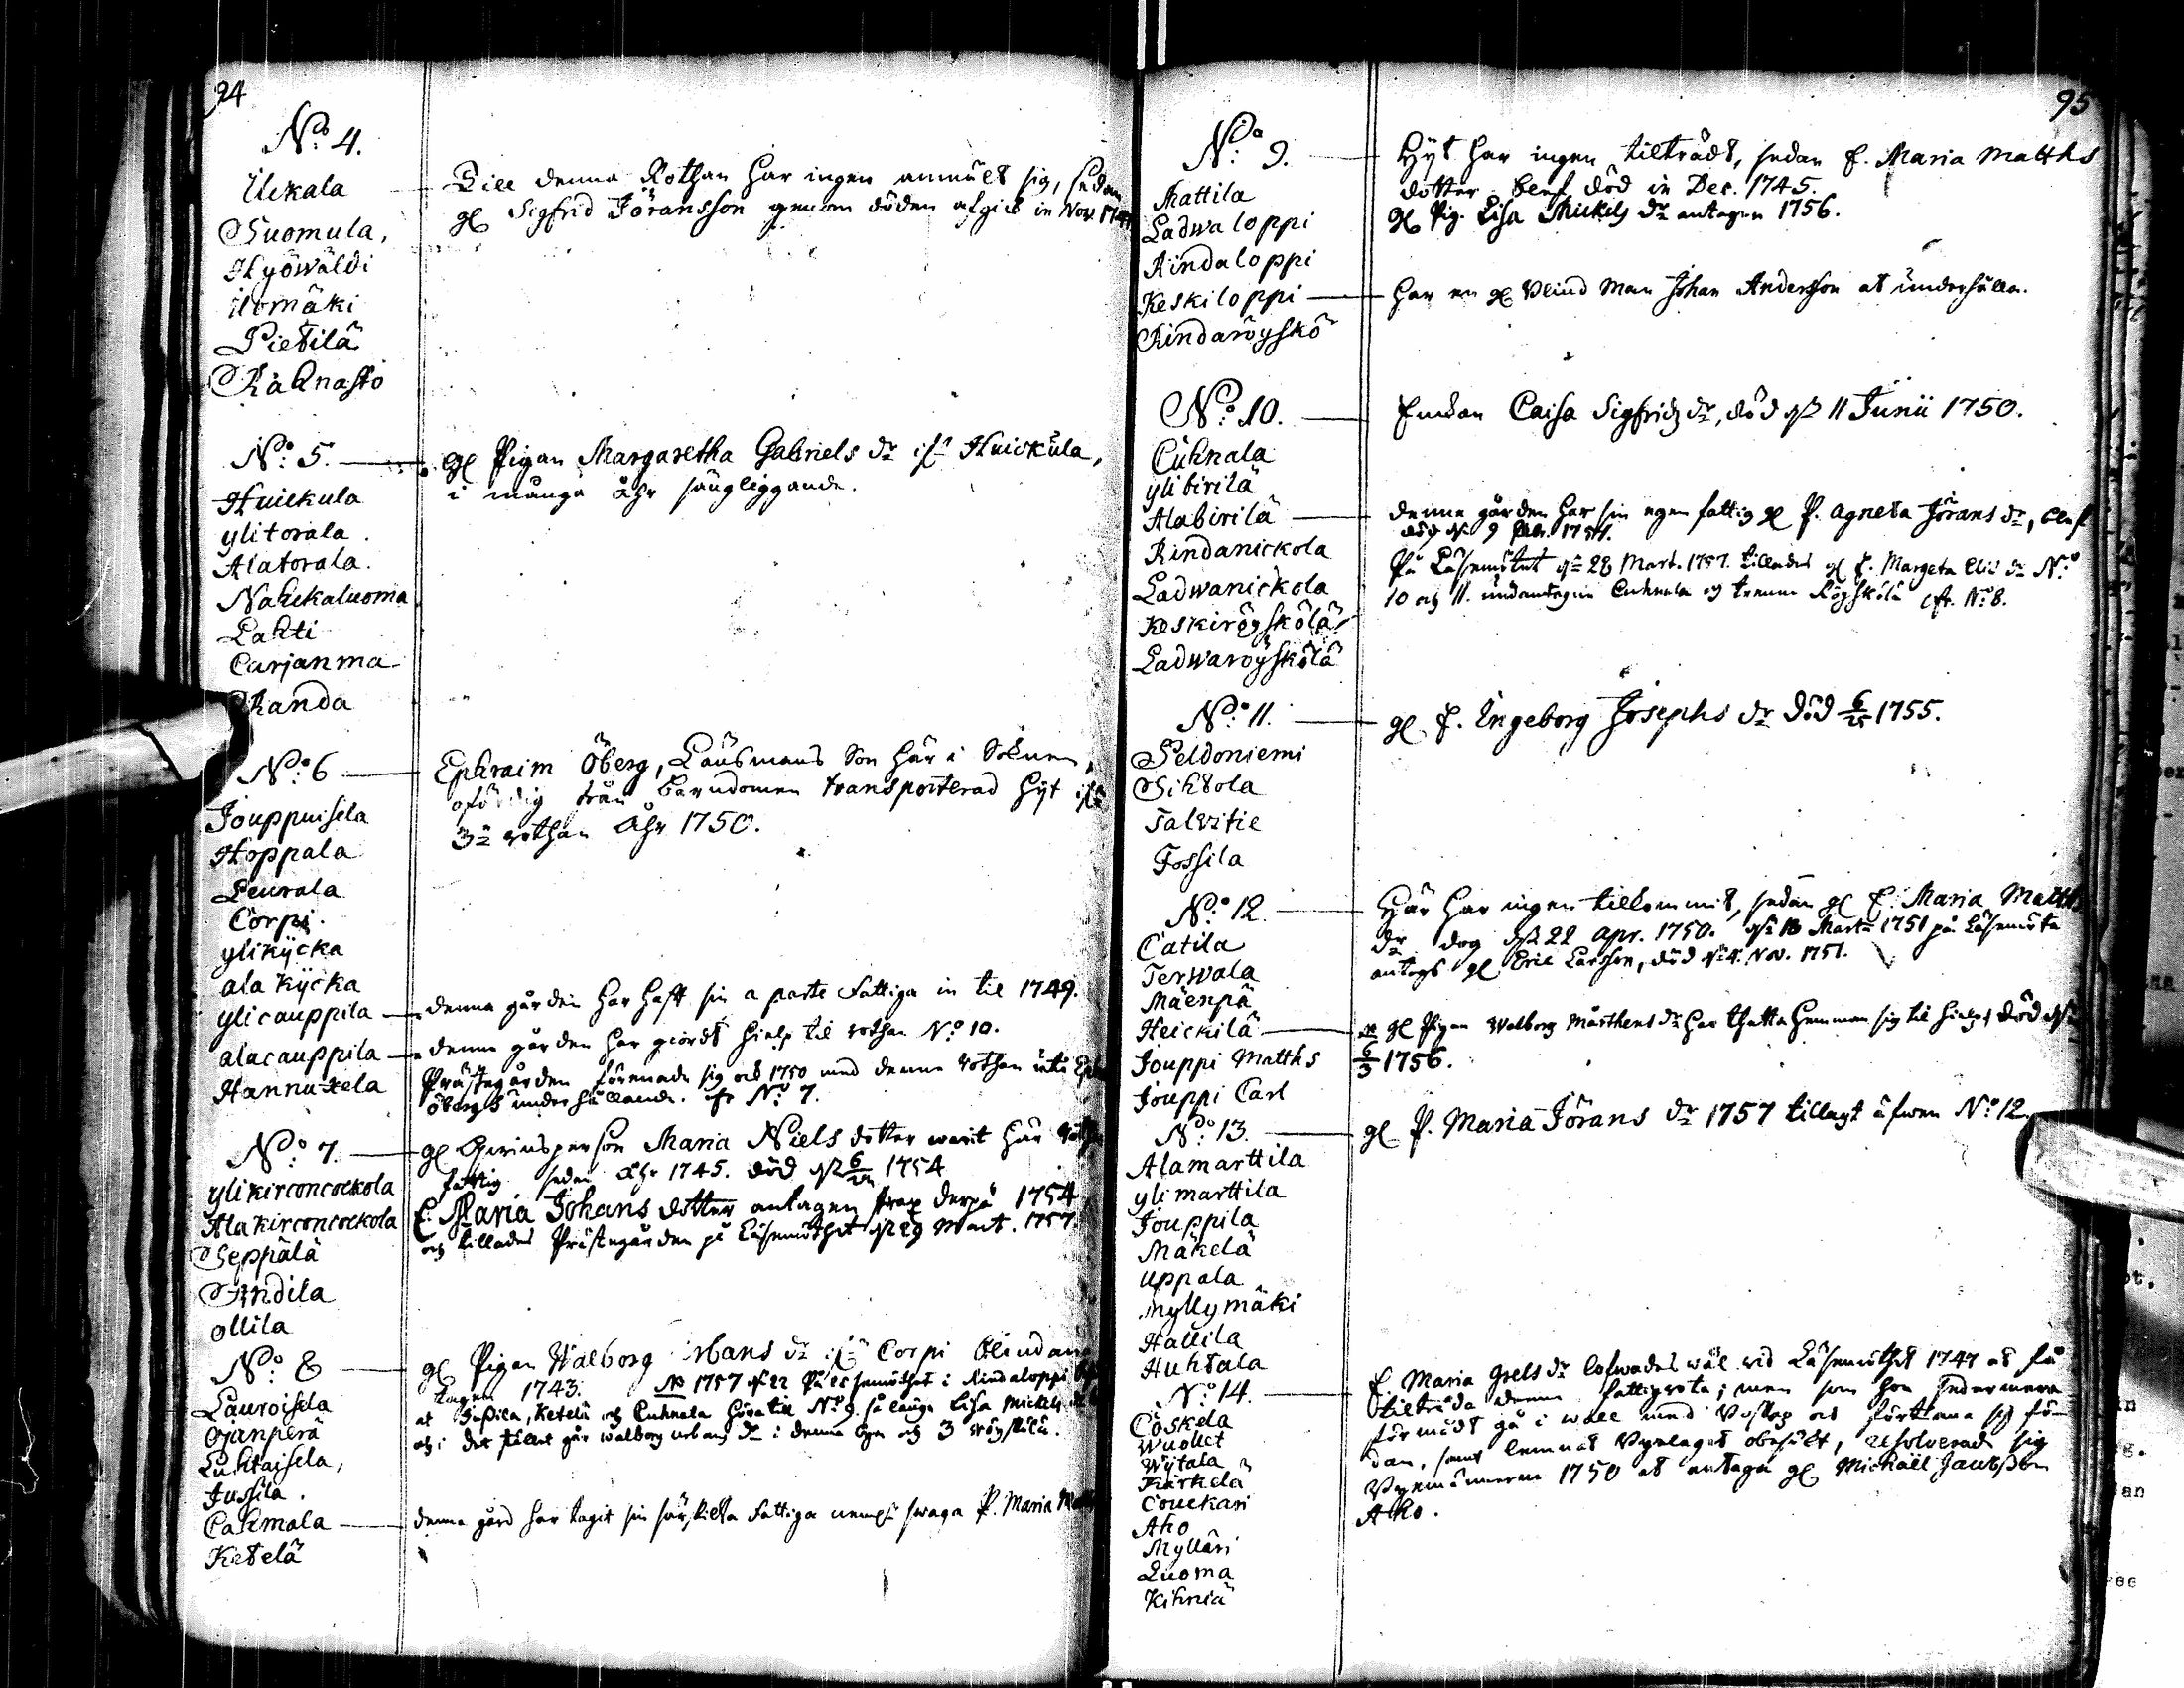 94
No: 4.
Ukkala
Suomula,
Hyöwäldi
ilomäki
Pietilä
Rahnasto
Till denna Rothan har ingen anmält sig, sedan
gl Sigfrid Jöransson genom döden afgick in Nov. 174
No: 5.
Huickula
ylitorala.
Alatorala.
Nahckaluoma
Lahti
Carjanma
Randa
gl Pigan Margaretha Gabriels dr ifr Huickula,
i många åhr sängliggande.
No: 6
Jouppuisela
Hoppala
Leurala
Corpi.
ylikycka
ala kycka
ylicauppila
alacauppila
Hannuxela
Ephraim Öberg, Länsmans Son här i Soknen,
ofördig från barndomen transporterad hyt ifr
3die rothan Åhr 1750.
denna gården har haft sin a parte Fattiga in til 1749.
denna gården har giordt hielp til rothan No 10.
Prästegården förenade sig 1750 med denna rothan
Öbergs underhållande. cfr No 7.
No: 7.
ylikirconcockola
Alakirconcockola
Seppälä
Andila
ollila
gl Qwinsperson Maria Niels dotter warit här
fattig sedan åhr 1745. död 1754
E. Maria Johans dotter antagen strax derpå 1754
och tillades Prästegården på Läsemöthet 29 Mart. 1757.
No: 8
Lauroisela
ojanperä
Luhtaisela,
Jussila.
Cahmala
Ketelä
gl Pigan Walborg Urbans dr ifrå Corpi
tagen 1743. 1757 22 På Läsemöthet i Rindaloppi
at Jussila, Ketelä och Cuhnala höra til No 9. så länge Lisa Mickels
och i det stället går Walborg urbans dr i denna byn och 3 röyskölä.
denna gård har tagit sin särskilta Fattiga swaga P. Maria
95
No: 9.
Mattila
Ladwaloppi
Rindaloppi
Keskiloppi
Rindaröyskö
Hyt har ingen tilträdt, sedan E. Maria Matths
dotter död in Dec. 1745.
gl Pig. Lisa Mickels dr antagen 1756.
har en gl blind Man Johan Andersson at underhålla.
No: 10.
Cuhnala
ylibirilä
Alabirilä
Rindanickola
Ladwanickola
Keskiröyskölä
Ladwaröyskölä
Enckan Caisa Sigfridz dr, död 11 Junii 1750.
denna gården har sin egen fattig gl P. Agneta Jörans dr,
död 9 1757.
På Läsemötet 28 Mart. 1757. tillades gl E. Margeta dr No
10 och 11. undantagne Cuhnala och trenne Röyskölä cfr. No 8.
No: 11.
Peldoniemi
Sihtola
Talvitie
Fossila
gl E. Ingeborg Josephs dr död 1755.
No: 12.
Catila
Terwala
Mäenpä
Heickilä
Jouppi Matths
Jouppi Carl
Här har ingen tilkommit, sedan gl E. Maria Matths
dr dog 22 Apr. 1750. 18 Martii 1751 på Läsemöte
antogs gl Eric Larsson, död 4 Nov. 1751.
gl Pigan Walborg Mårthens dr har thetta hemman sig til hielp död
6/3 1756.
No: 13.
Alamarttila
ylimarttila
Jouppila
Mäkelä
uppala
myllymäki
Hallila
Huhtala
gl P. Maria Jörans dr 1757 tillagt äfwen No: 12.
No: 14.
Coskela
Wuollet
Wytala
Karkelä
Couckari
Aho
Mylläri
Luoma
Kihniä
E. Maria Grels dr lofwades wäl wid Läsemöthet 1747 at få
tilträda denna fattigrota; men som hon sedermera
förmådt gå i wall med Boskap och förtiena sig fö-
dan, samt lemnat Byelaget obesökt, resolverade sig
Byemännerne 1750 at antaga gl Michaël Jacobsson
Aho.